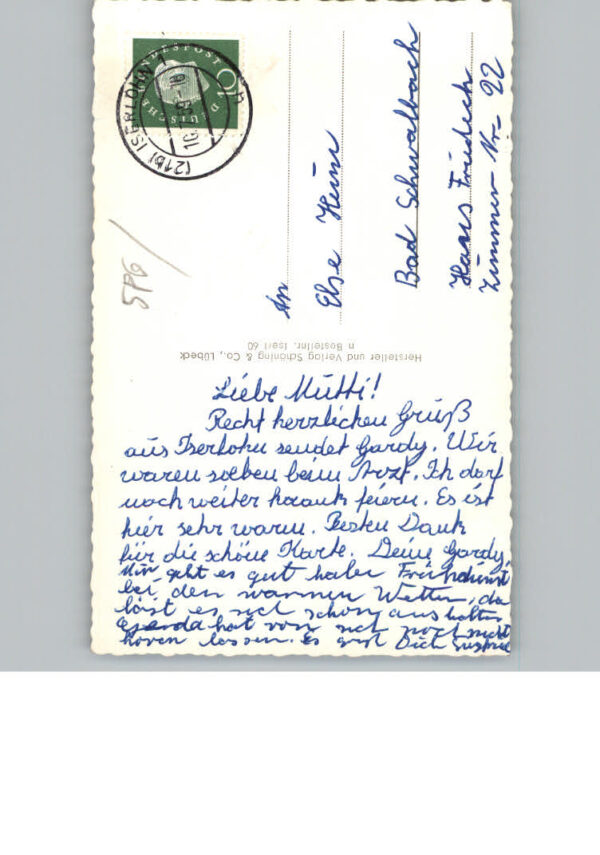 DEUTSCHE BUNDESPOST
20
(21b) ISERLOHN 1
10.7.59-18
h
An
Else Heim
Bad Schwalbach
Haus Friedeck
Zimmer Nr. 22
5PG/
Hersteller und Verlag Schöning & Co., Lübeck
n Bestellnr. Iserl 60
Liebe Mutti!
Recht herzlichen Gruß
aus Iserlohn sendet Gardy. Wir
waren soeben beim Arzt. Ich darf
noch weiter krank feiern. Es ist
hier sehr warm. Besten Dank
für die schöne Karte. Deine Gardy
Mir geht es gut habe Frühdinst
bei den warmen Wetter, da
läst es sich schon aushalten
hat von sich noch nicht
hören lassen. Es Dich